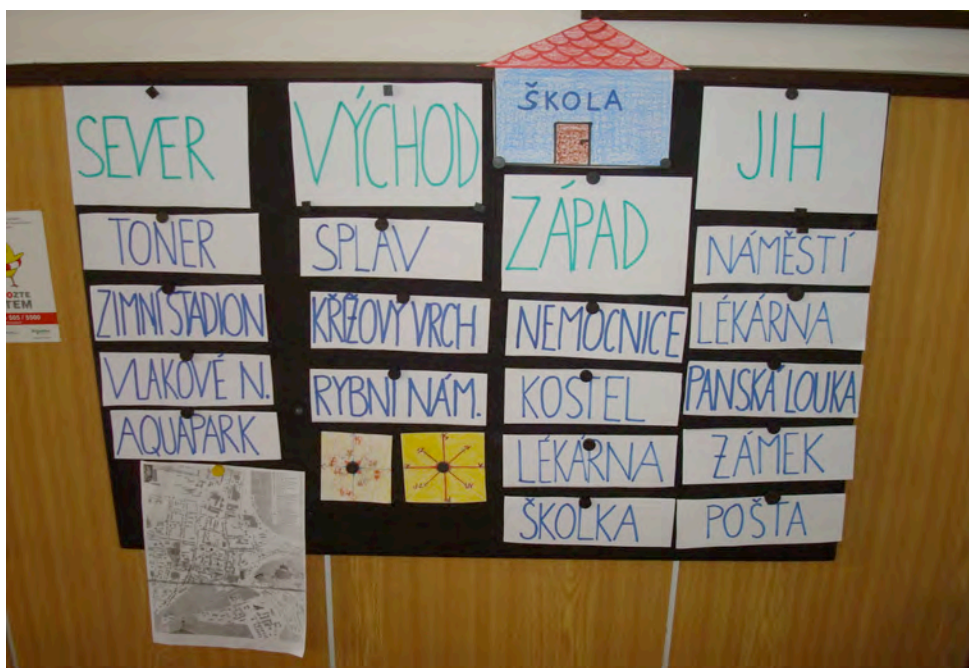 ŠKOLA
SEVER
TONER
ZIMNÍ STADION
VLAKOVÉ N.
AQUAPARK
VÝCHOD
SPLAV
KŘÍŽOVÝ VRCH
RYBNÍ NÁM.
ZÁPAD
NEMOCNICE
KOSTEL
LÉKÁRNA
ŠKOLKA
JIH
NÁMĚSTÍ
LÉKÁRNA
PANSKÁ LOUKA
ZÁMEK
POŠTA